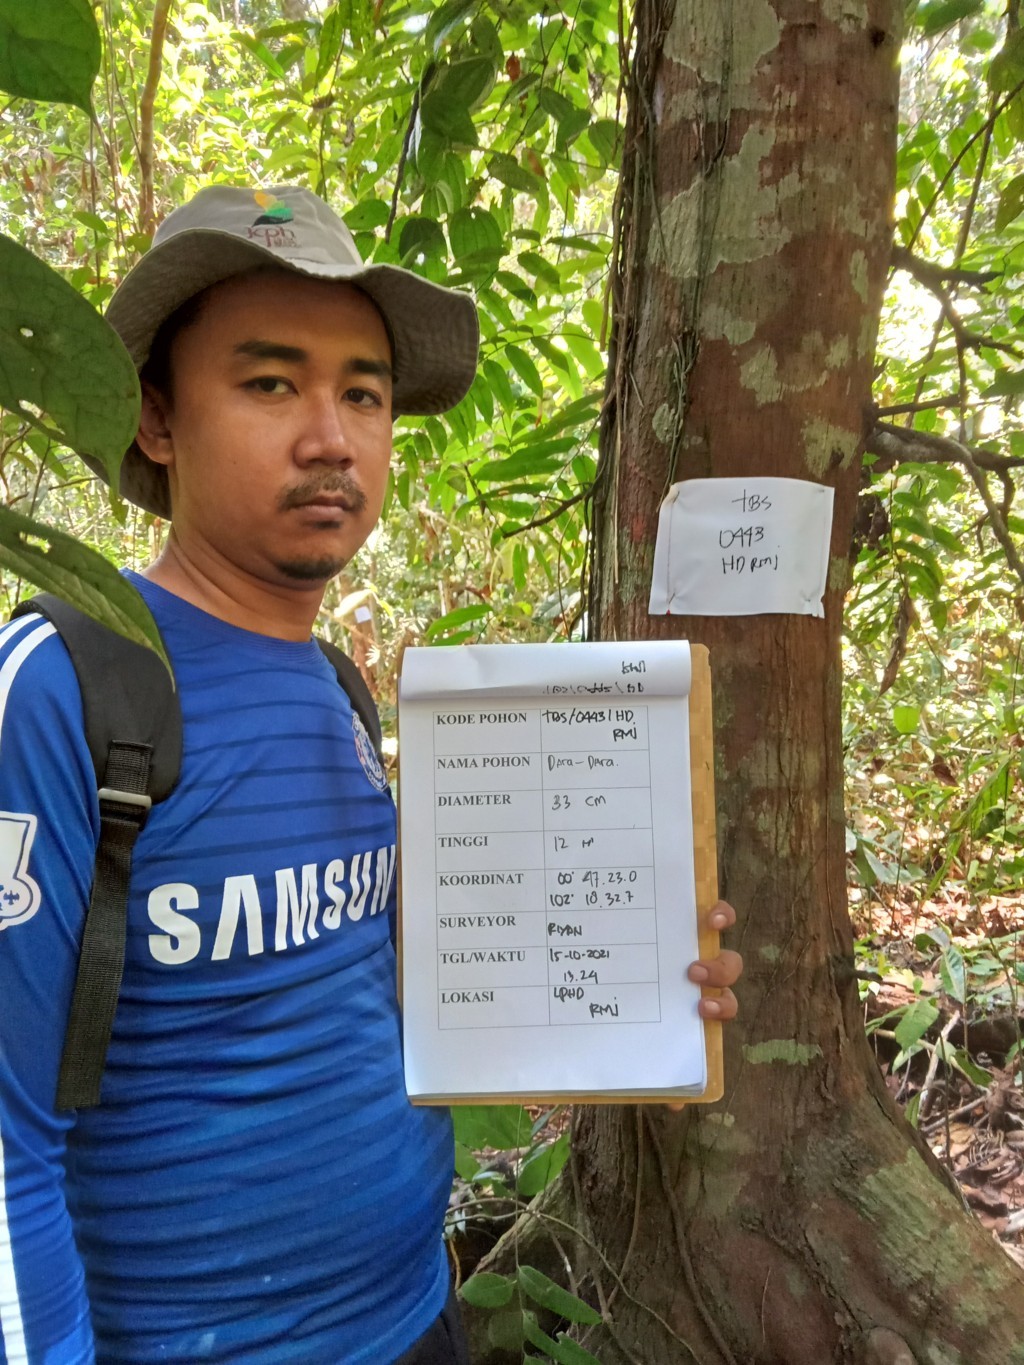 kph
TBS
0443
HD RMJ
KODE POHON TBS/0443/HD.
RMJ
NAMA POHON Dara-Dara.
DIAMETER 33 CM
TINGGI 12 M
KOORDINAT 00° 47.23.0
102° 18.32.7
SURVEYOR RIYAN
TGL/WAKTU 15-10-2021
13.24
LOKASI LPHD
RMJ
SAMSUN